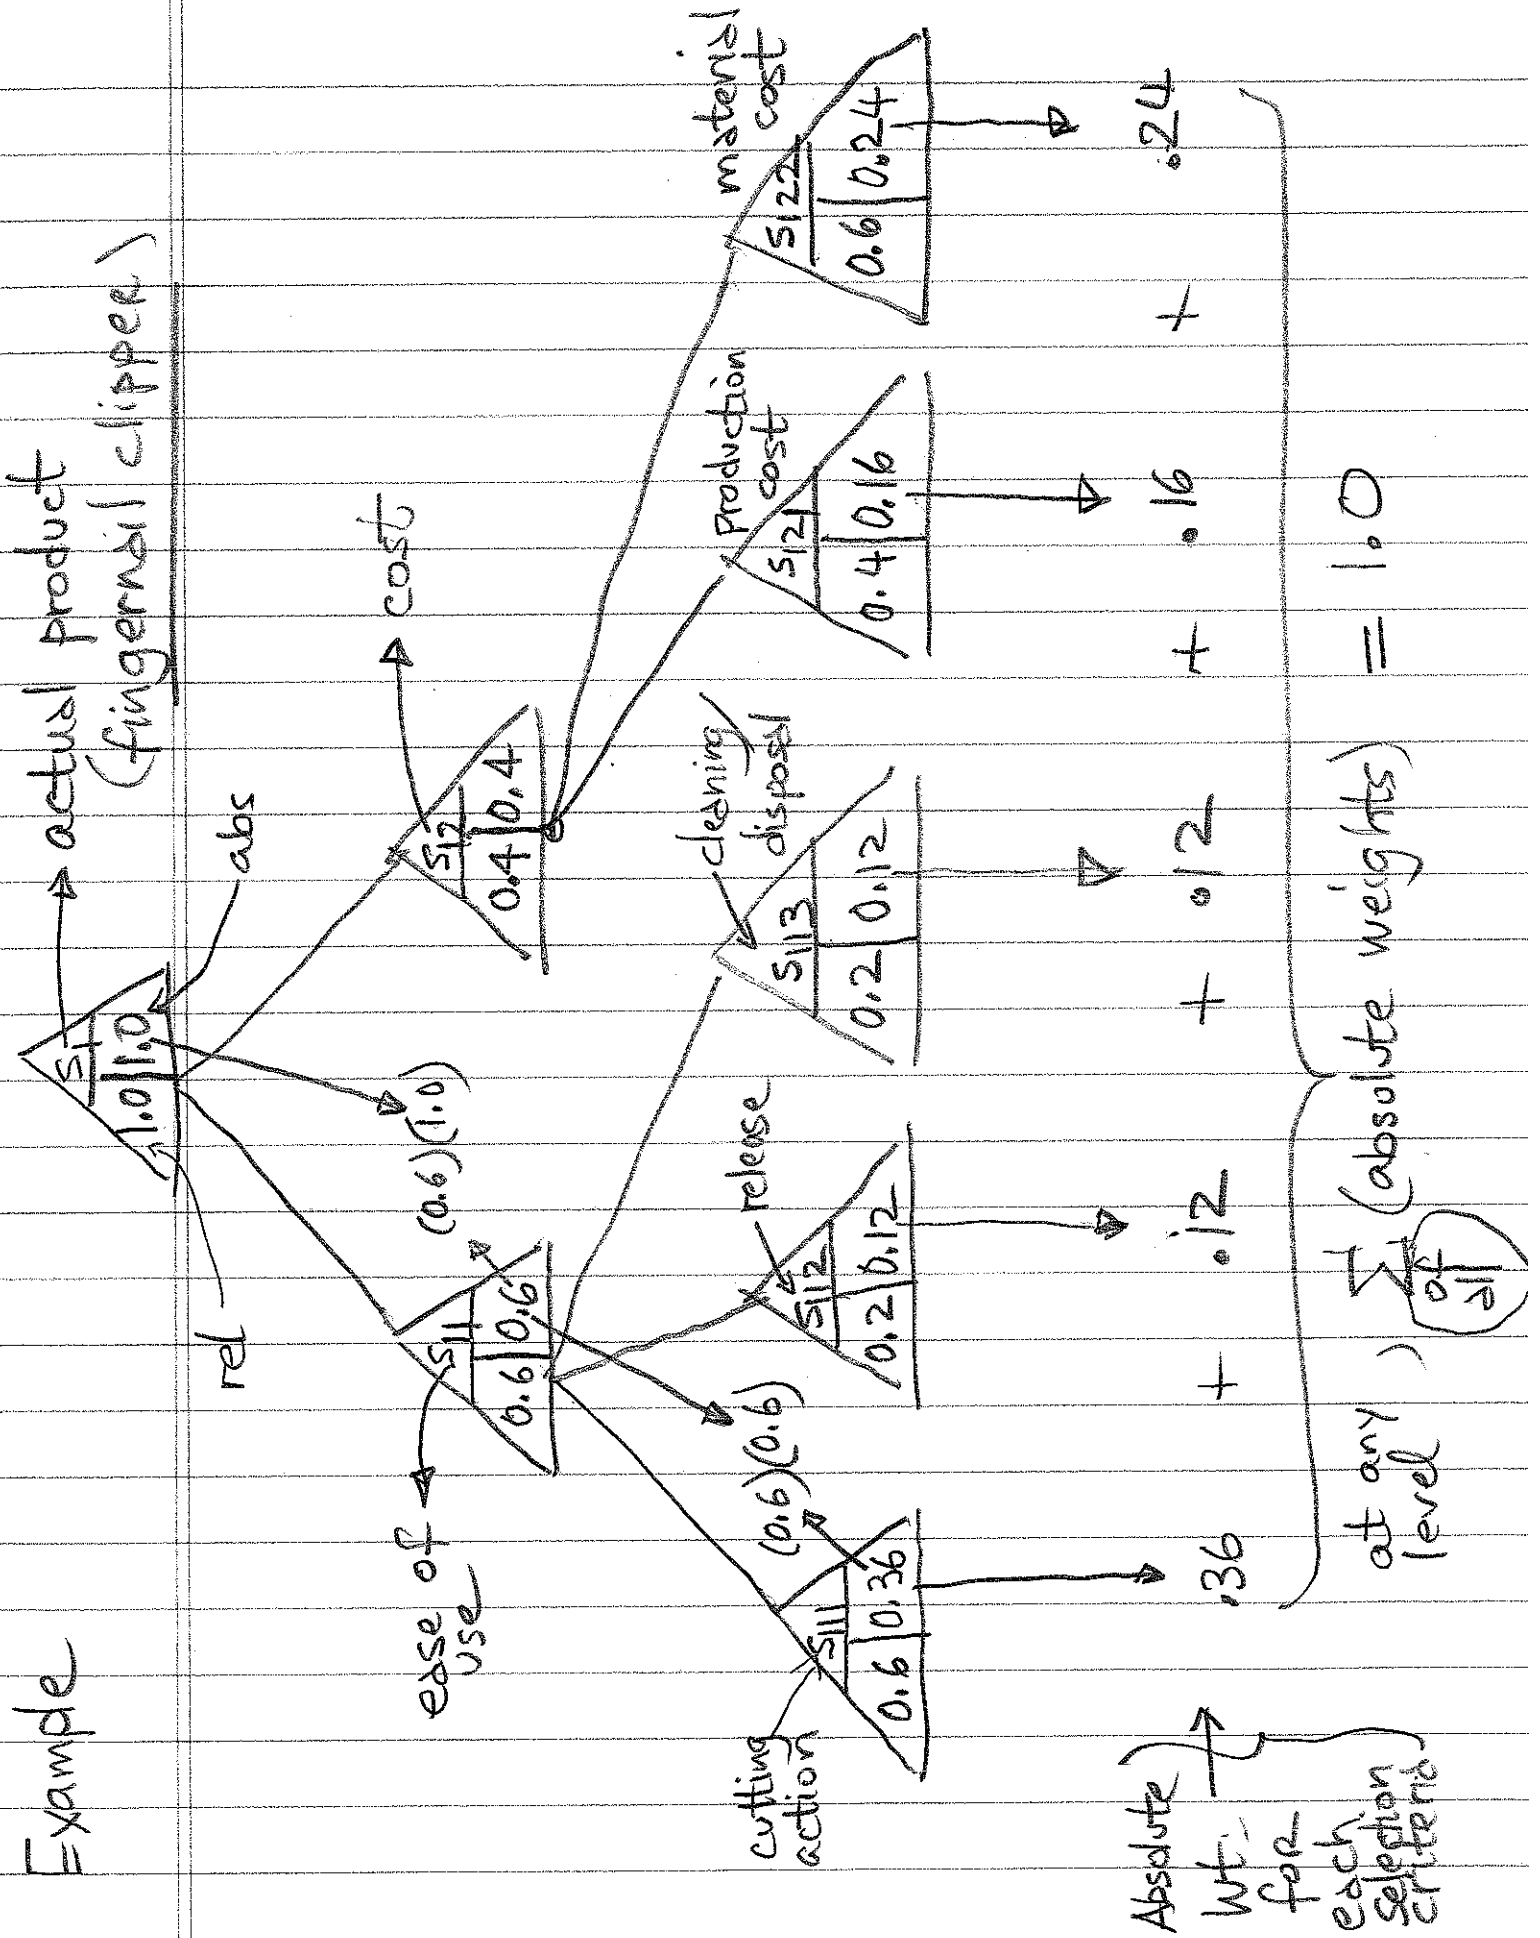 Example
actual product
(fingernail clipper)
S1
1.0 | 1.0
rel
abs
(0.6)(1.0)
ease of
use
S11
0.6 | 0.6
cost
S12
0.4 | 0.4
(0.6)(0.6)
cutting
action
S111
0.6 | 0.36
release
S112
0.2 | 0.12
cleaning/
disposal
S113
0.2 | 0.12
production
cost
S121
0.4 | 0.16
material
cost
S122
0.6 | 0.24
Absolute
Wt.
for
each
selection
criteria
.36 + .12 + .12 + .16 + .24
at any
level, Σ (absolute weights) = 1.0
of
all